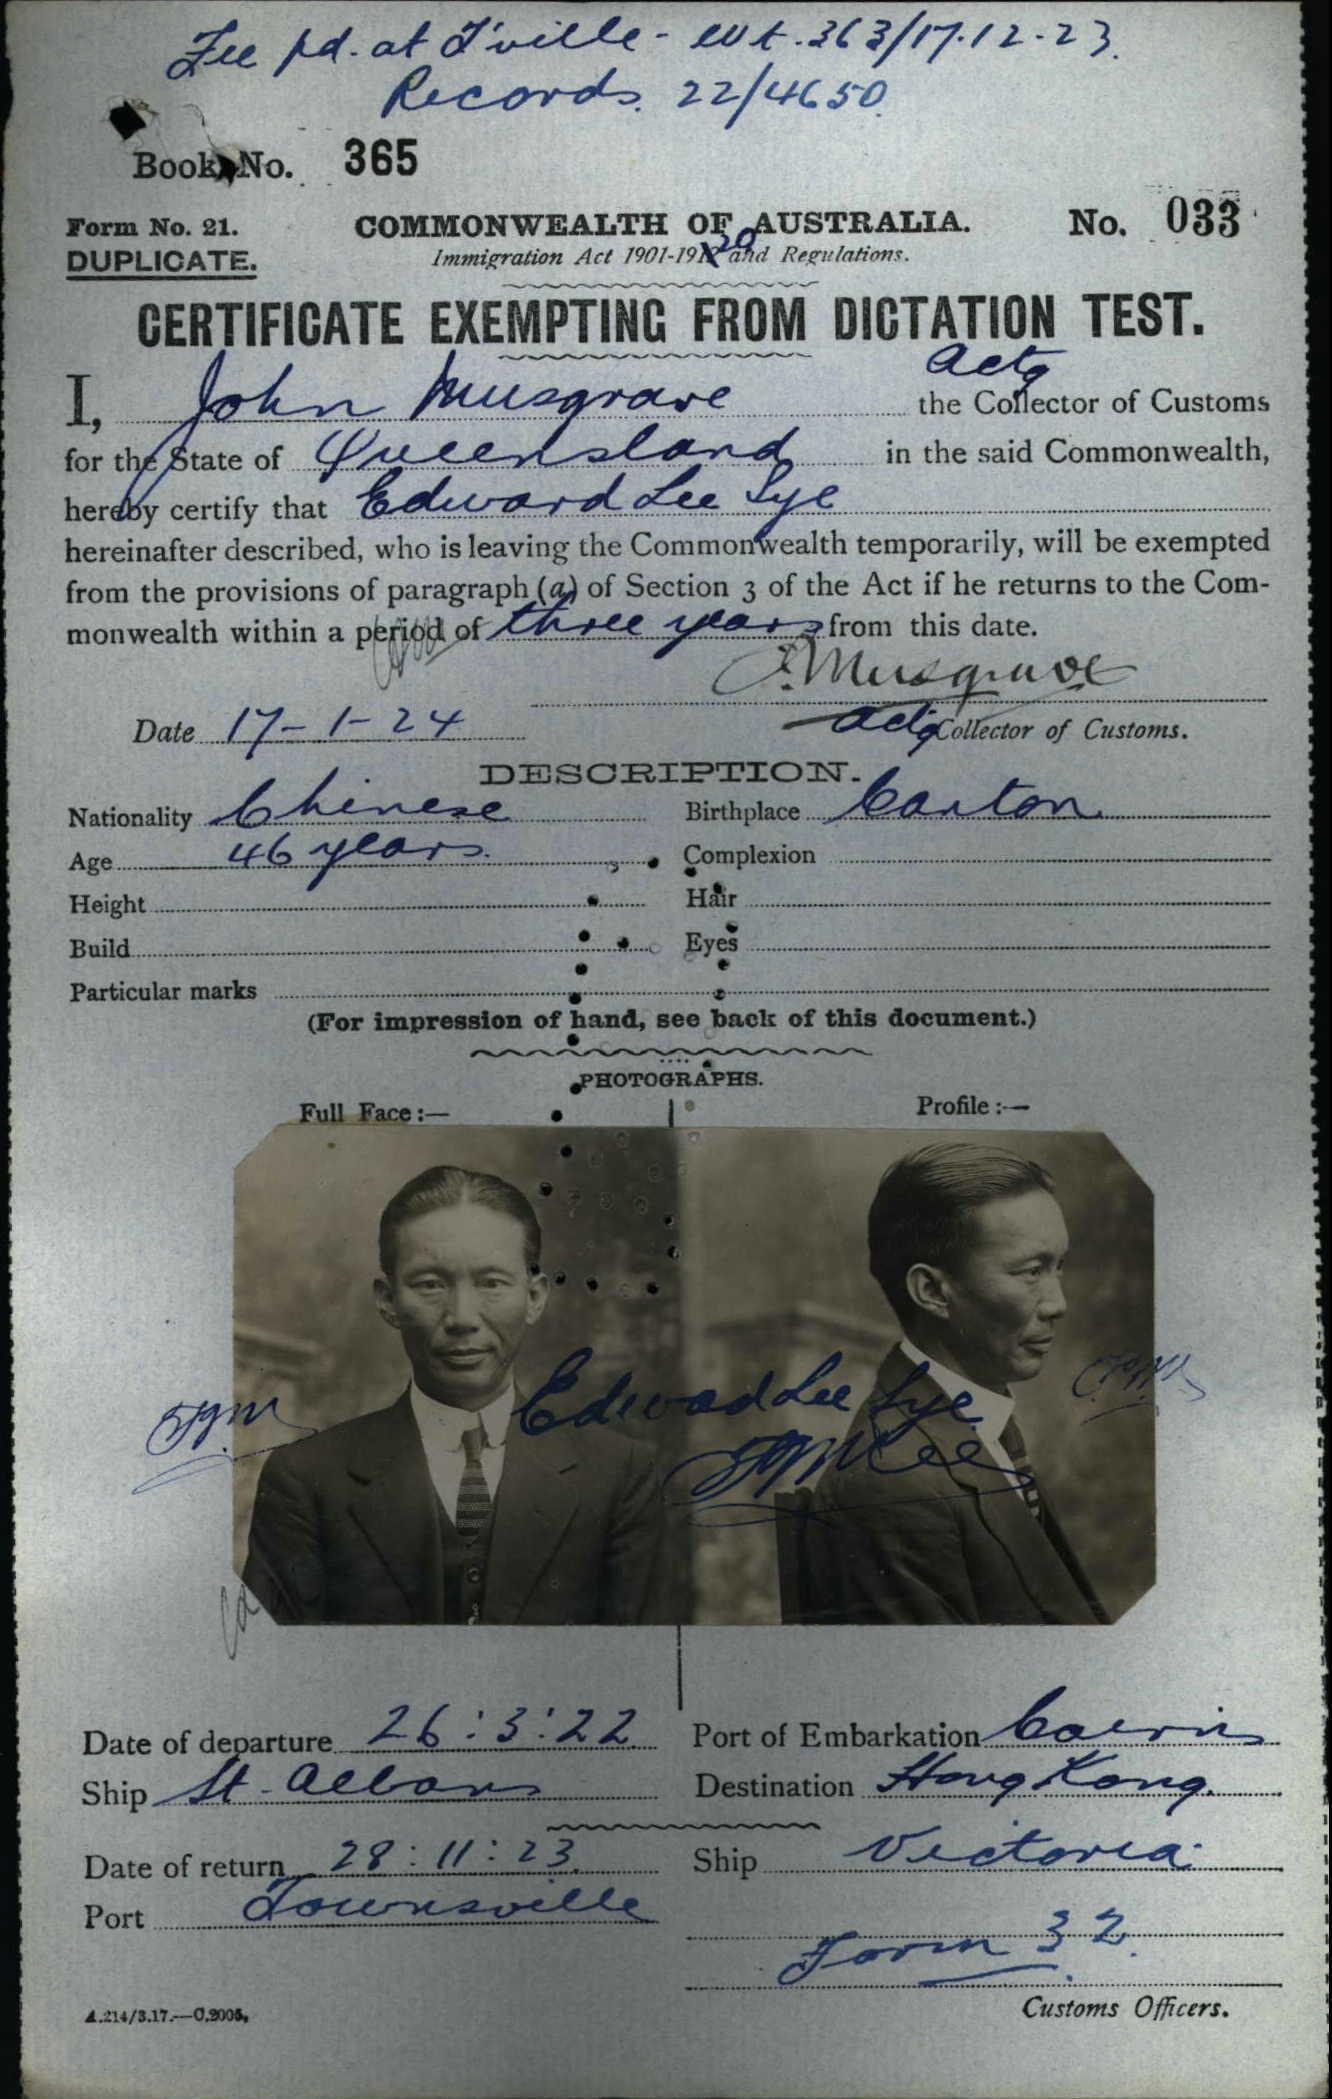 Fee pd. at T'ville - Wt. 363/17.12.23.
Records. 22/4650
Book No. 365
Form No. 21.
COMMONWEALTH OF AUSTRALIA.
No. 033
DUPLICATE.
Immigration Act 1901-1920 and Regulations.
CERTIFICATE EXEMPTING FROM DICTATION TEST.
I, John Musgrave actg the Collector of Customs
for the State of Queensland in the said Commonwealth,
hereby certify that Edward Lee Sye
hereinafter described, who is leaving the Commonwealth temporarily, will be exempted
from the provisions of paragraph (a) of Section 3 of the Act if he returns to the Com-
monwealth within a period of three years from this date.
J. Musgrave
Date 17-1-24
actg Collector of Customs.
DESCRIPTION.
Nationality Chinese Birthplace Canton
Age 46 years. Complexion
Height Hair
Build Eyes
Particular marks
(For impression of hand, see back of this document.)
PHOTOGRAPHS.
Full Face:— Profile:—
Edward Lee Sye
Date of departure 26:3:22 Port of Embarkation Cairns
Ship St. Albans Destination Hong Kong.
Date of return 28:11:23. Ship Victoria
Port Townsville
Form 32.
A.214/3.17.—C.2005.
Customs Officers.